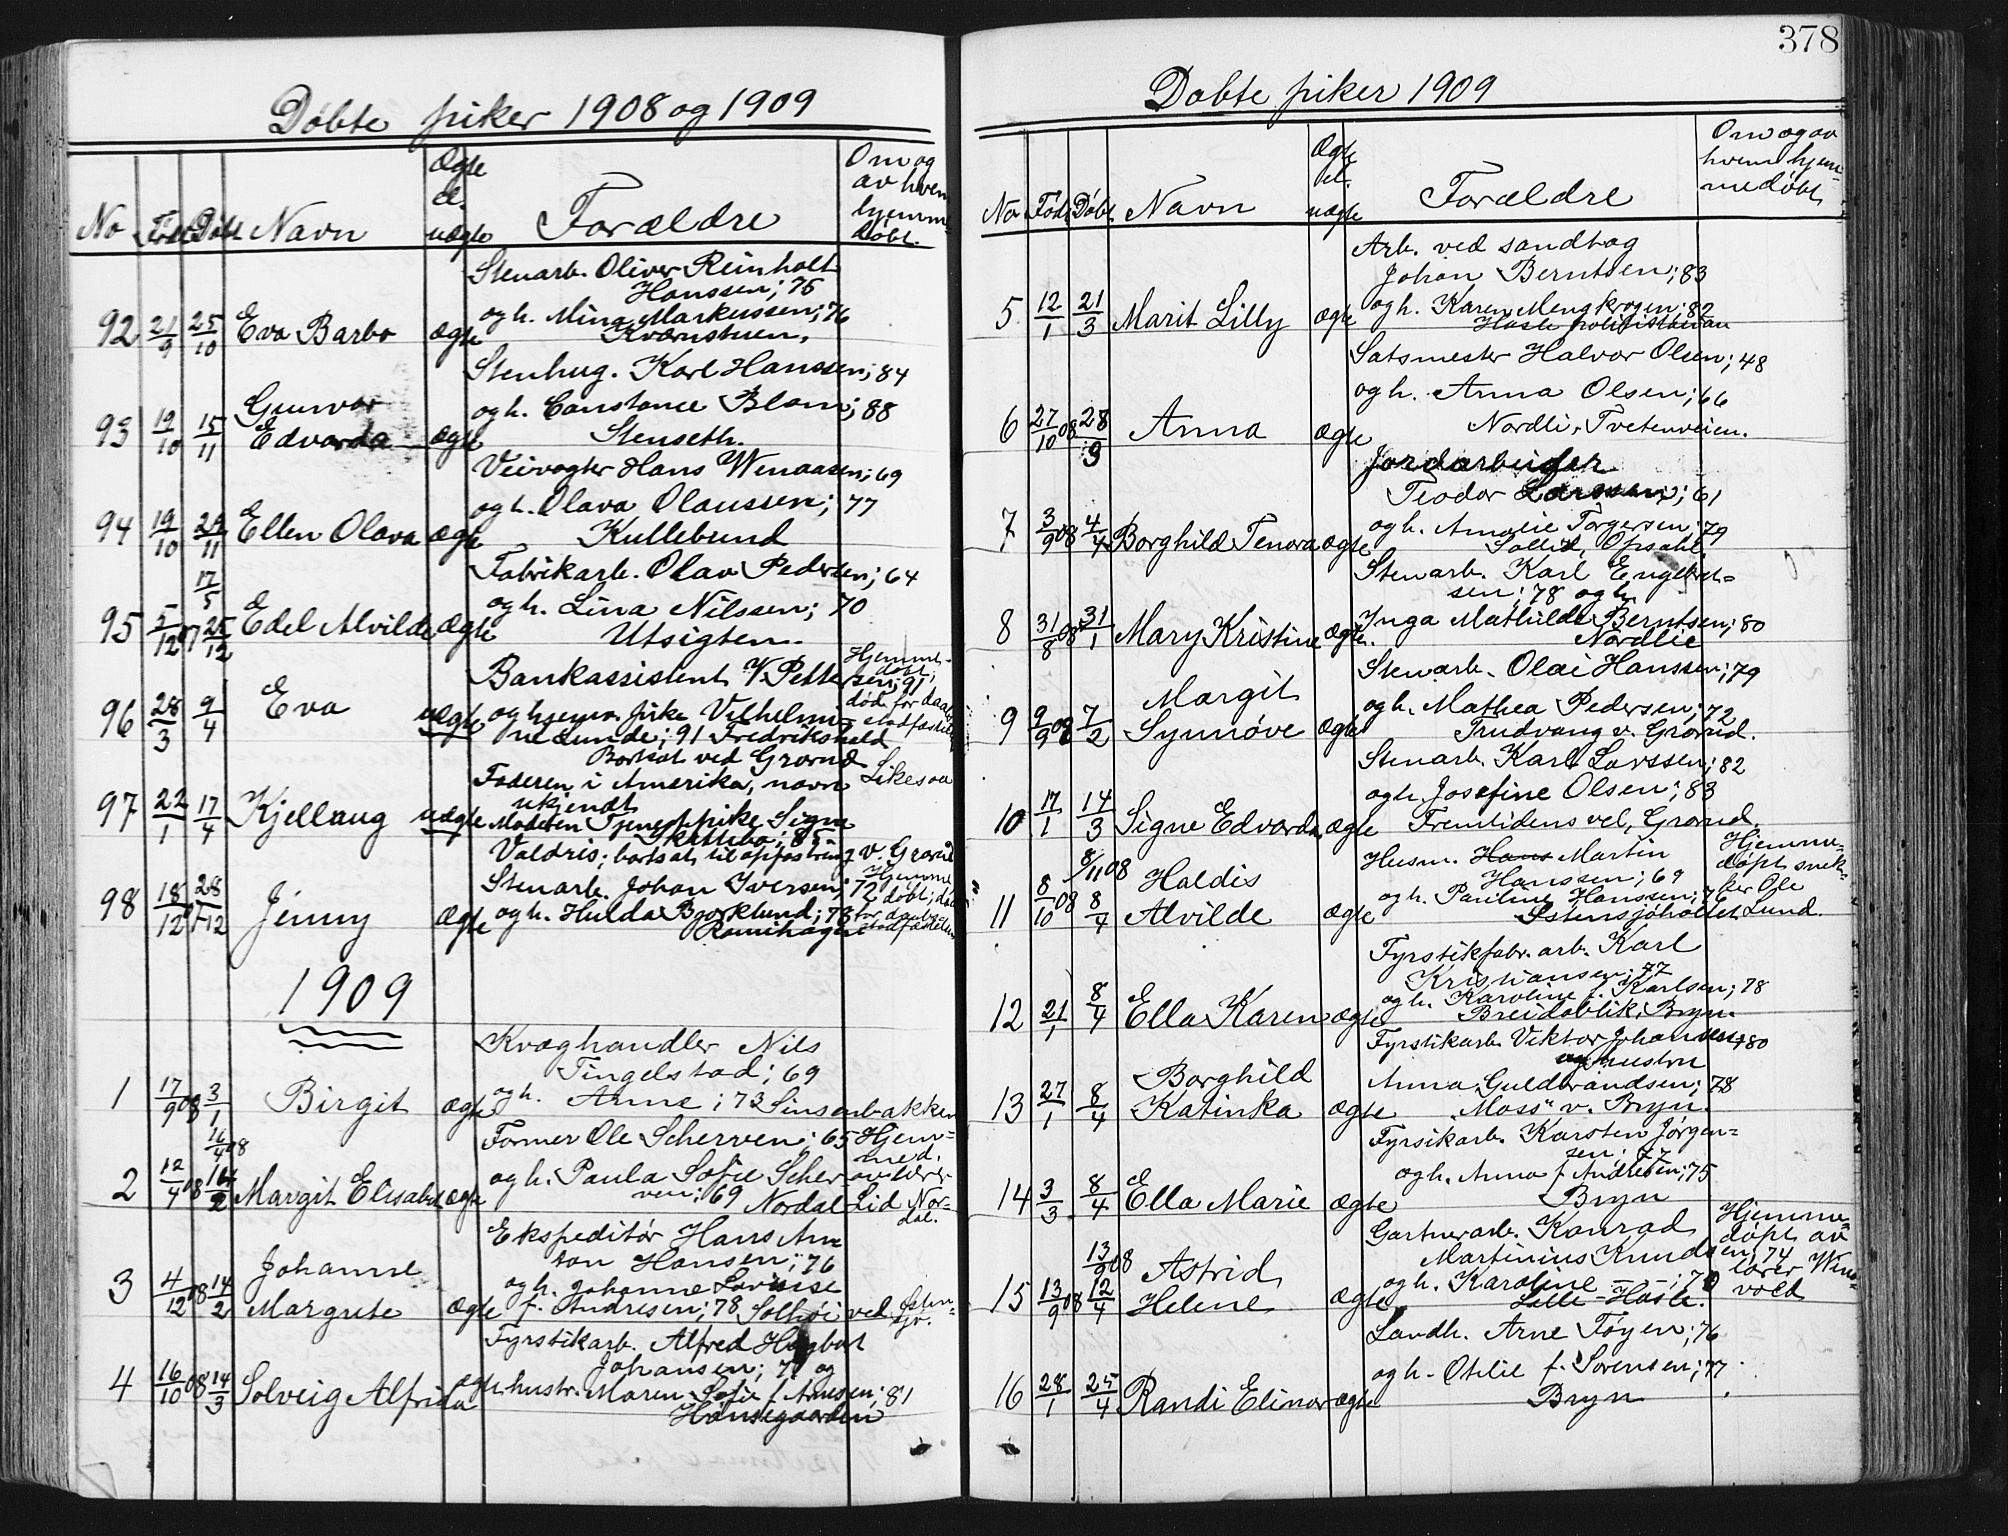 378
Døbte piker 1908 og 1909
No Født Døbt Navn Ægte el. uægte Forældre Om og av hvem hjemmedøbt.
92 21/9 25/10 Eva Barbo ægte
Stenarb. Oliver Reinholt
Hanssen; 75
og h. Mina Markussen; 76
Kværnstuen.
93 19/10 15/11 Gunvor
Edvarda ægte
Stenhug. Karl Hanssen; 84
og h. Constance Blom; 88
Stenseth.
94 19/10 29/11 Ellen Olava ægte
Veivogter Hans Wenaasen; 69
og h. Olava Olaussen; 77
Kullebund
17/5
95 5/12 07 25/12 Edel Alvilde ægte
Fabrikarb. Olav Pedersen; 64
og h. Lina Nilssen; 70
Utsigten.
96 28/3 9/4 Eva uægte
Bankassistent V. Pettersen; 91
og hjemv. pike Vilhelmine
Lunde; 91 Fredrikshald
Bortsat ved Grorud
Hjemmedøbt;
død før daabs
stadfæstelse
97 22/1 17/4 Kjellaug uægte
Faderen i Amerika, navn
ukjendt
Moderen Tjenestpike Signe
Skattebo; 85
Valdris; bortsat til opfostring v. Grorud
Likesaa
98 18/12 28/12 Jenny ægte
Stenarb. Johan Iversen; 72
og h. Hulda Bjørklund; 78
Hjemmedøbt; død
før daabs
stadfæstelsen
1909
1 17/9 08 3/1 Birgit ægte
Kvæghandler Nils
Tingelstad; 69
og h. Anne; 73 Sinsenbakken
16/4 08
2 12/4 08 14/2 Margit Elisabet ægte
Former Ole Scherven; 65
og h. Paula Sofie Scherven; 69 Nordal
Hjemmed.
av lærer
Lid Nordal.
3 4/12 08 14/2 Johanne
Margrete ægte
Ekspeditør Hans Anton Hansen; 76
og h. Johanne Lovisse
f. Andresen; 78 Solhøi ved Østensjø.
4 16/10 08 14/3 Solveig Alfrida ægte
Fyrstikarb. Alfred Hagbart
Johansen; 7 og
hustr. Maren Sofie f. Arnesen; 81
Hønsegaarden
Døbte piker 1909
No Født Døbt Navn Ægte el. uægte Forældre Om og av hvem hjemmedøbt
5 12/1 21/3 Marit Lilly ægte
Arb. ved sandtag
Johan Berntsen; 83
og h. Karen Mengkrogen; 82
Hasle politistation
6 27/10 08 28/3 Anna ægte
Satsmester Halvor Olsen; 48
og h. Anna Olsen; 66
Nordli, Tvetenveien.
7 3/9 08 4/4 Borghild Tenora ægte
Jordarbeider
Teodor Larssen; 61
og h. Amalie Torgersen; 79
Sollid, Opsahl
8 31/8 08 31/1 Mary Kristine ægte
Stenarb. Karl Engebretsen; 78 og h.
Inga Mathilde Berntsen; 80
Nordlie
9 9/9 08 7/2 Margit
Synnøve ægte
Stenarb. Olai Hanssen; 79
og h. Mathea Pedersen; 72
Trudvang v. Grorud.
10 17/1 14/3 Signe Edvarda ægte
Stenarb. Karl Larssen; 82
og h. Josefine Olsen; 83
Fremtidens vel, Grorud.
8/11 08
11 8/10 08 8/4 Haldis
Alvilde ægte
Husm. Hans Martin
Hanssen; 69
og h. Pauline Hanssen; 76
Østensjøholtet
Hjemmedøpt snekker Ole
Lund.
12 21/1 8/4 Ella Karen ægte
Fyrstikfabr. arb. Karl
Kristiansen; 77
og h. Karoline f. Karlsen; 78
Breidablik, Bryn.
13 27/1 8/4 Borghild
Katinka ægte
Fyrstikarb. Viktor Johannessen; 80
og hustru
Anna Guldbrandsen; 78
"Moss" v. Bryn.
14 3/3 8/4 Ella Marie ægte
Fyrsikarb. Karsten Jørgensen; 77
og h. Anna f. Andresen; 75
Bryn
13/9 08
15 13/9 08 12/4 Astrid
Helene ægte
Gartnerarb. Konrad
Martinius Knudsen; 74
og h. Karoline — " —; 70
Lille-Hasle.
Hjemmedøpt av
lærer Wennvold
16 28/1 25/4 Randi Elinor ægte
Landh. Arne Tøyen; 76
og h. Otilie f. Sørensen; 77
Bryn